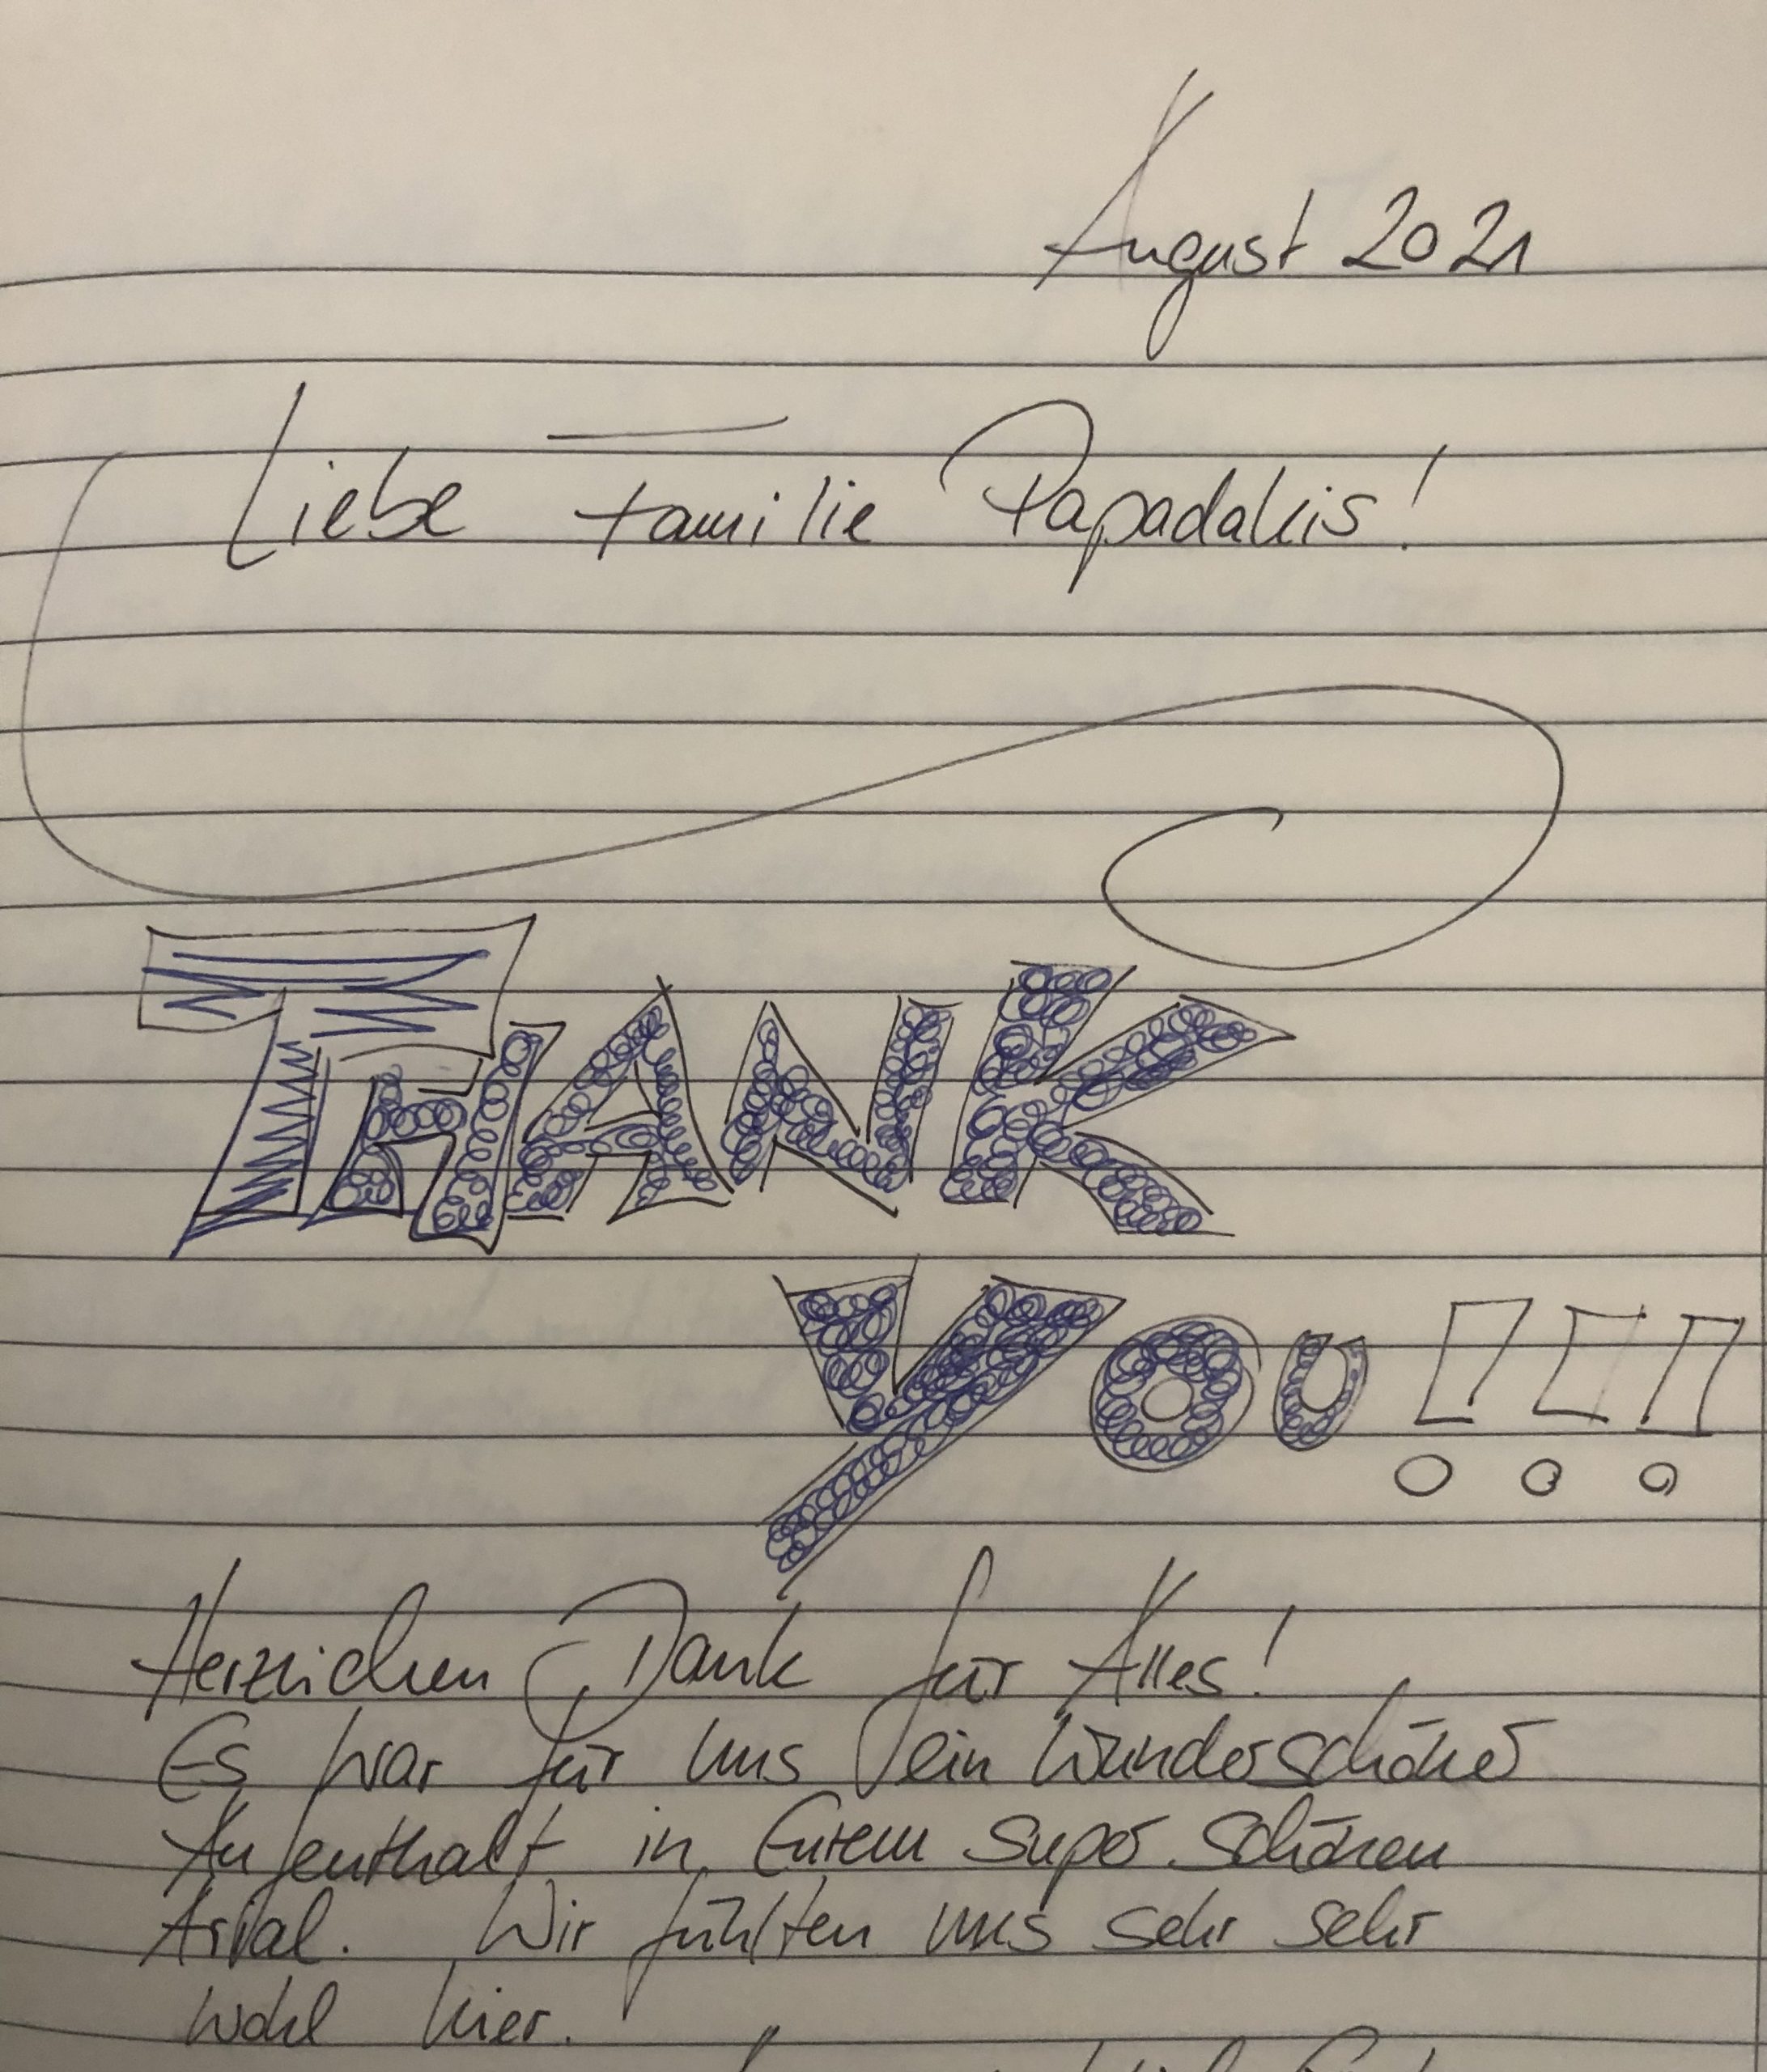 August 2021
Liebe Familie Papadakis!
THANK
YOU!!!
Herzlichen Dank für Alles!
Es war für uns ein wunderschöner
Aufenthalt in Eurem super schönen
Wir fühlten uns sehr sehr
wohl hier.